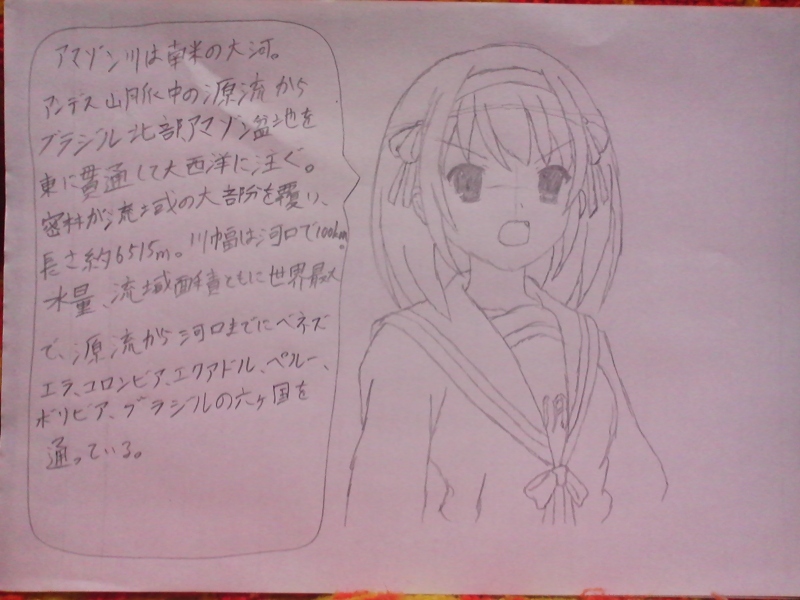 アマゾン川は南米の大河。
アンデス山脈中の源流から
ブラジル北部アマゾン盆地を
東に貫通して大西洋に注ぐ。
密林が流域の大部分を覆い、
長さ約6515m。川幅は河口で100km。
水量、流域面積ともに世界最大
で、源流から河口までにベネズ
エラ、コロンビア、エクアドル、ペルー、
ボリビア、ブラジルの六ヶ国を
通っている。